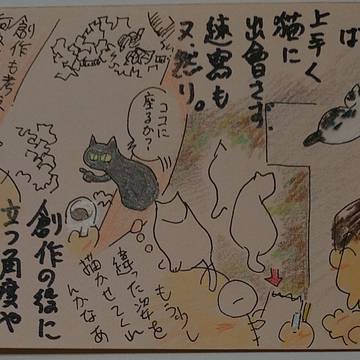 は
上手く
猫に
出會さず、
速寫も
又、然り。
創作も考え
ココに
座るか?
もう少し
違った姿を
描かせてくれ
んかなあ
創作の役に
立つ角度や